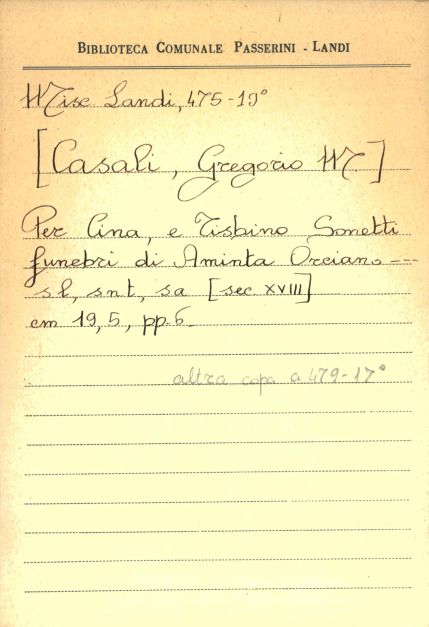 BIBLIOTECA COMUNALE PASSERINI - LANDI
Misc Landi, 475-19°
[Casali, Gregorio M.]
Per Cina, e Tisbino Sonetti
funebri di Aminta Orciano ---
s.l., s.n.t., s.a. [sec XVIII]
cm 19,5, pp. 6.
altra copa a 479-17°